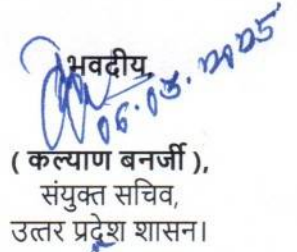 भवदीय,
06.03.2025
( कल्याण बनर्जी ),
संयुक्त सचिव,
उत्तर प्रदेश शासन।